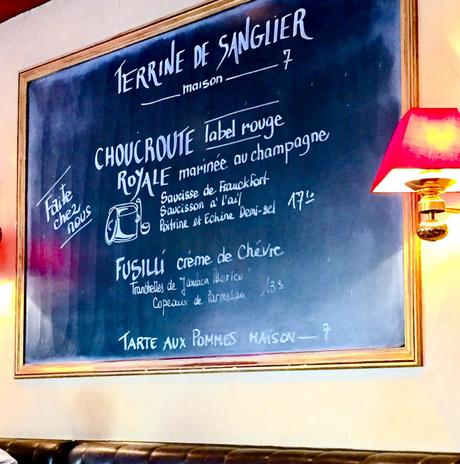 TERRINE DE SANGLIER
maison 7
CHOUCROUTE label rouge
ROYALE marinée au champagne
Faite
chez
nous
Saucisse de Franckfort
Saucisson a' l'ail
Poitrine et Echine Demi-sel
FUSILLI crème de Chèvre
Tranchettes de Jambon
Copeaux de Parmesan
TARTE AUX POMMES MAISON 7